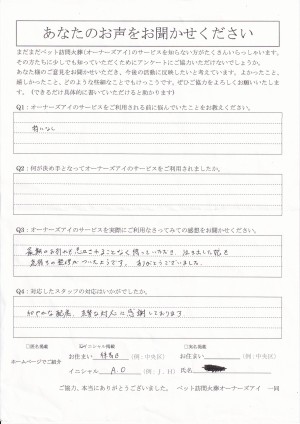 あなたのお声をお聞かせください
まだまだペット訪問火葬(オーナーズアイ)のサービスを知らない方がたくさんいらっしゃいます。
その方たちに少しでも知っていただくためにアンケートにご協力いただけないでしょうか。
あなた様のご意見をお聞かせいただき、今後の活動に反映したいと考えています。よかったこと、
嬉しかったこと、どのような些細なことでもけっこうです。ぜひご協力をよろしくお願いいたしま
す。（できるだけ具体的に書いていただけると助かります）
Q1：オーナーズアイのサービスをご利用される前に悩んでいたことをお教えください。
特になし
Q2：何が決め手となってオーナーズアイのサービスをご利用されましたか。
Q3：オーナーズアイのサービスを実際にご利用なさってみての感想をお聞かせください。
最期のお別れを
気持ちの整理がついたようです。ありがとうございました。
Q4：対応したスタッフの対応はいかがでしたか。
な対応に感謝しております
□匿名掲載
☑イニシャル掲載
□実名掲載
ホームページでご紹介
お住まい
(例：中央区)
お住まい
(例：中央区)
イニシャル A.O (例：J．H)
氏名
ご協力、本当にありがとうございました。 ペット訪問火葬オーナーズアイ 一同